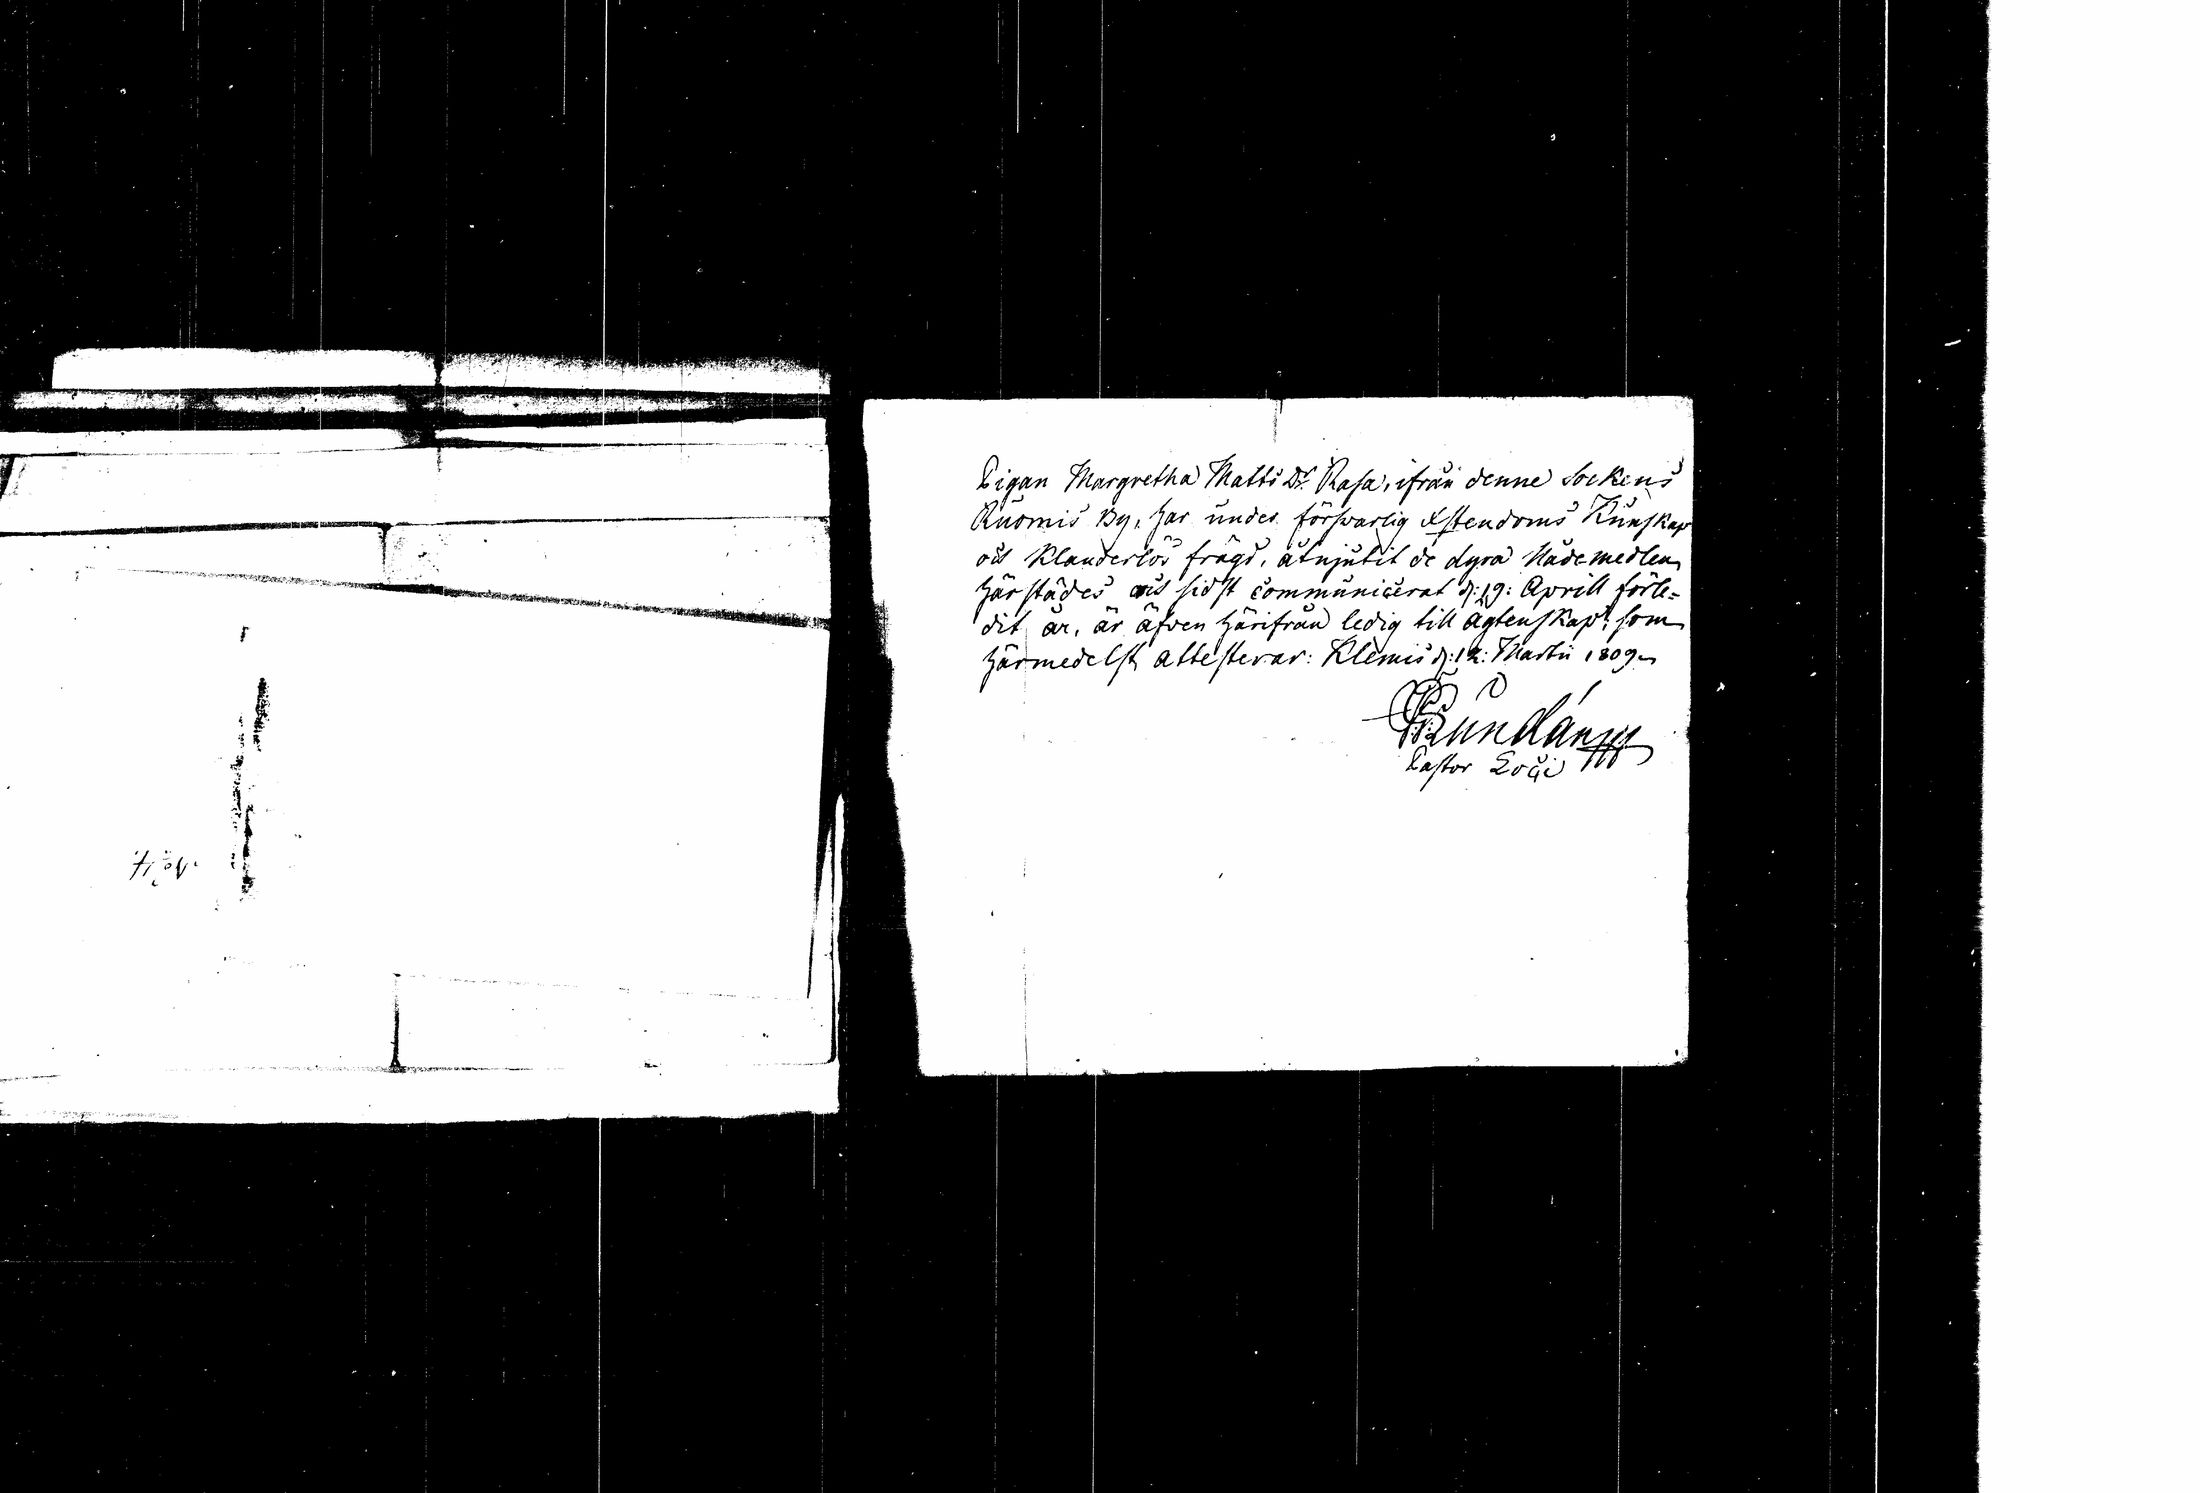 Pigan Margretha Matts Dr. Rasa, ifrån denne Sockens
Ruomis By, har under förswarlig Xstendoms Kunskap
och Klanderlös frägd, åtnjutit de dyra Nådemedlen
härstädes och sidst communicerat d: 19: Aprill förle-
dit år, är äfwen härifrån ledig till ägtenskap: som
härmedelst attesterar: Klemis d: 12: Martii 1809
Pastor Loci